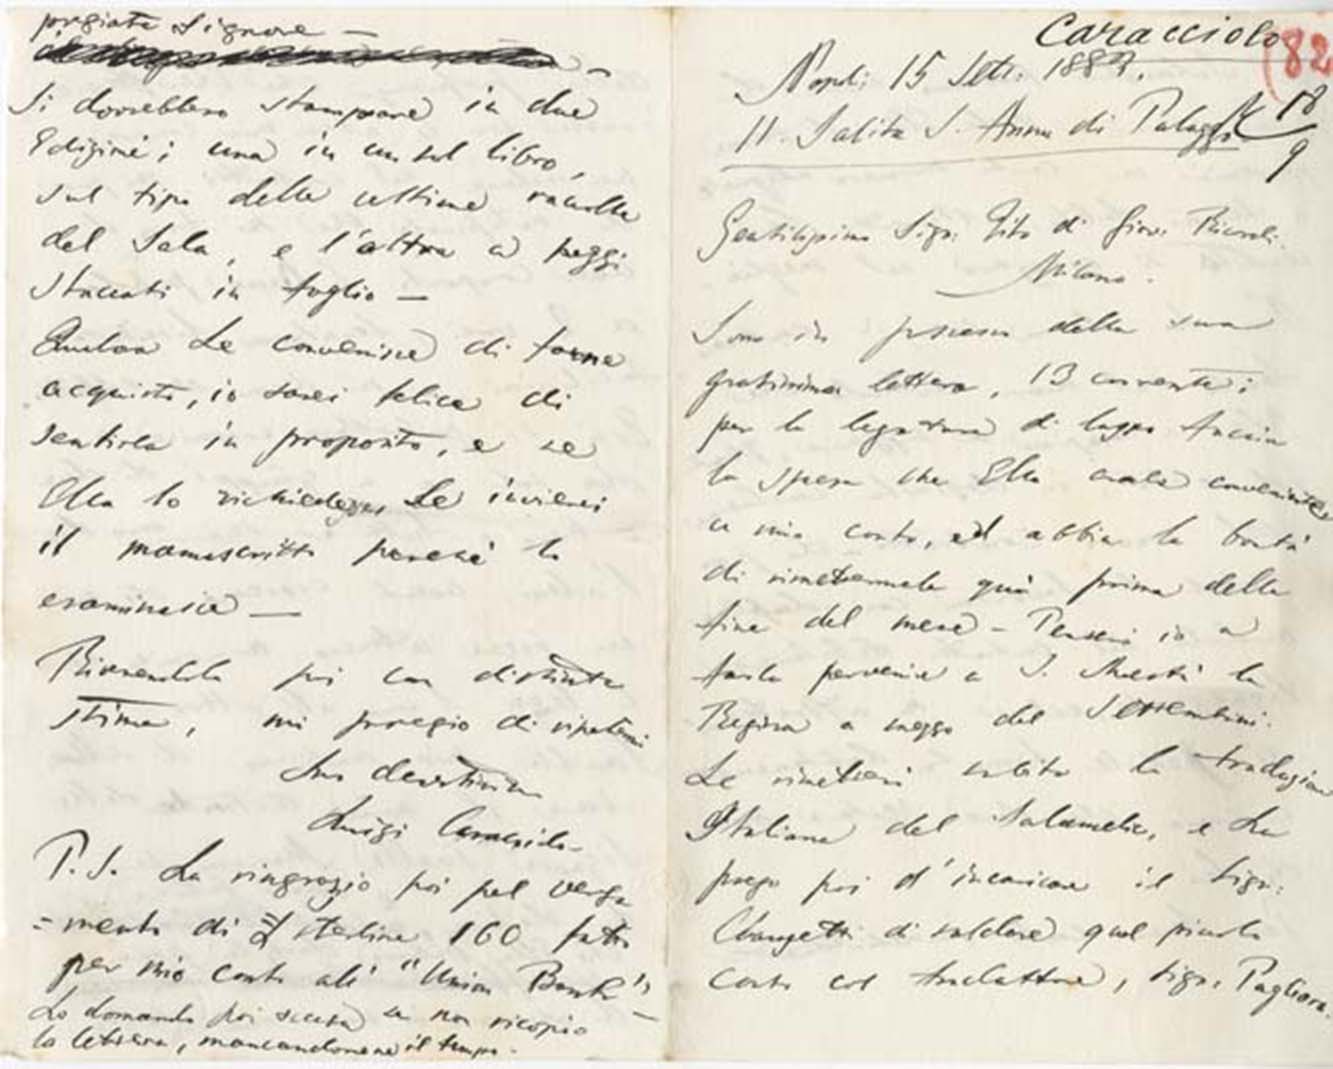 Caracciolo
82
Napoli 15 Sett. 1887.
11. Salita S. Anna di Palazzo
18
9
Gentilissimo Sigr. Tito di Giov. Ricordi.
Milano.
Sono in possesso della sua
gratissima lettera, 13 corrente;
per la legatura di lusso faccia
la spesa che Ella crede conveniente,
a mio conto, ed abbia la bontà
di rimettermela quì prima della
fine del mese - Penserei io a
farla pervenire a S. Maestà la
Regina a mezzo del Settembrini.
Le rimetterei subito la traduzione
Italiana del Salamelic, e La
prego poi d'incaricare il Sigr.
di saldare quel piccolo
conto col traduttore, Sigr. Pagliara.
pregiato Signore —
Si dovrebbero stampare in due
Edizioni; una in un sol libro,
sul tipo della ultima raccolta
del Sala, e l'altra a pezzi
staccati in foglio —
Qualora Le convenisse di farne
acquisto, io sarei felice di
sentirla in proposito, e se
Ella lo richiedesse, Le invierei
il manoscritto perchè lo
esaminasse —
Riverendola poi con distinta
stima, mi pregio di ripetermi
Suo devotissimo
Luigi Caracciolo -
P.S. La ringrazio poi pel versa
= mento di £ sterline 160 fatto
per mio conto alì "Union Bank" —
Le domando poi scusa se non ricopio
la lettera, mancandomene il tempo.